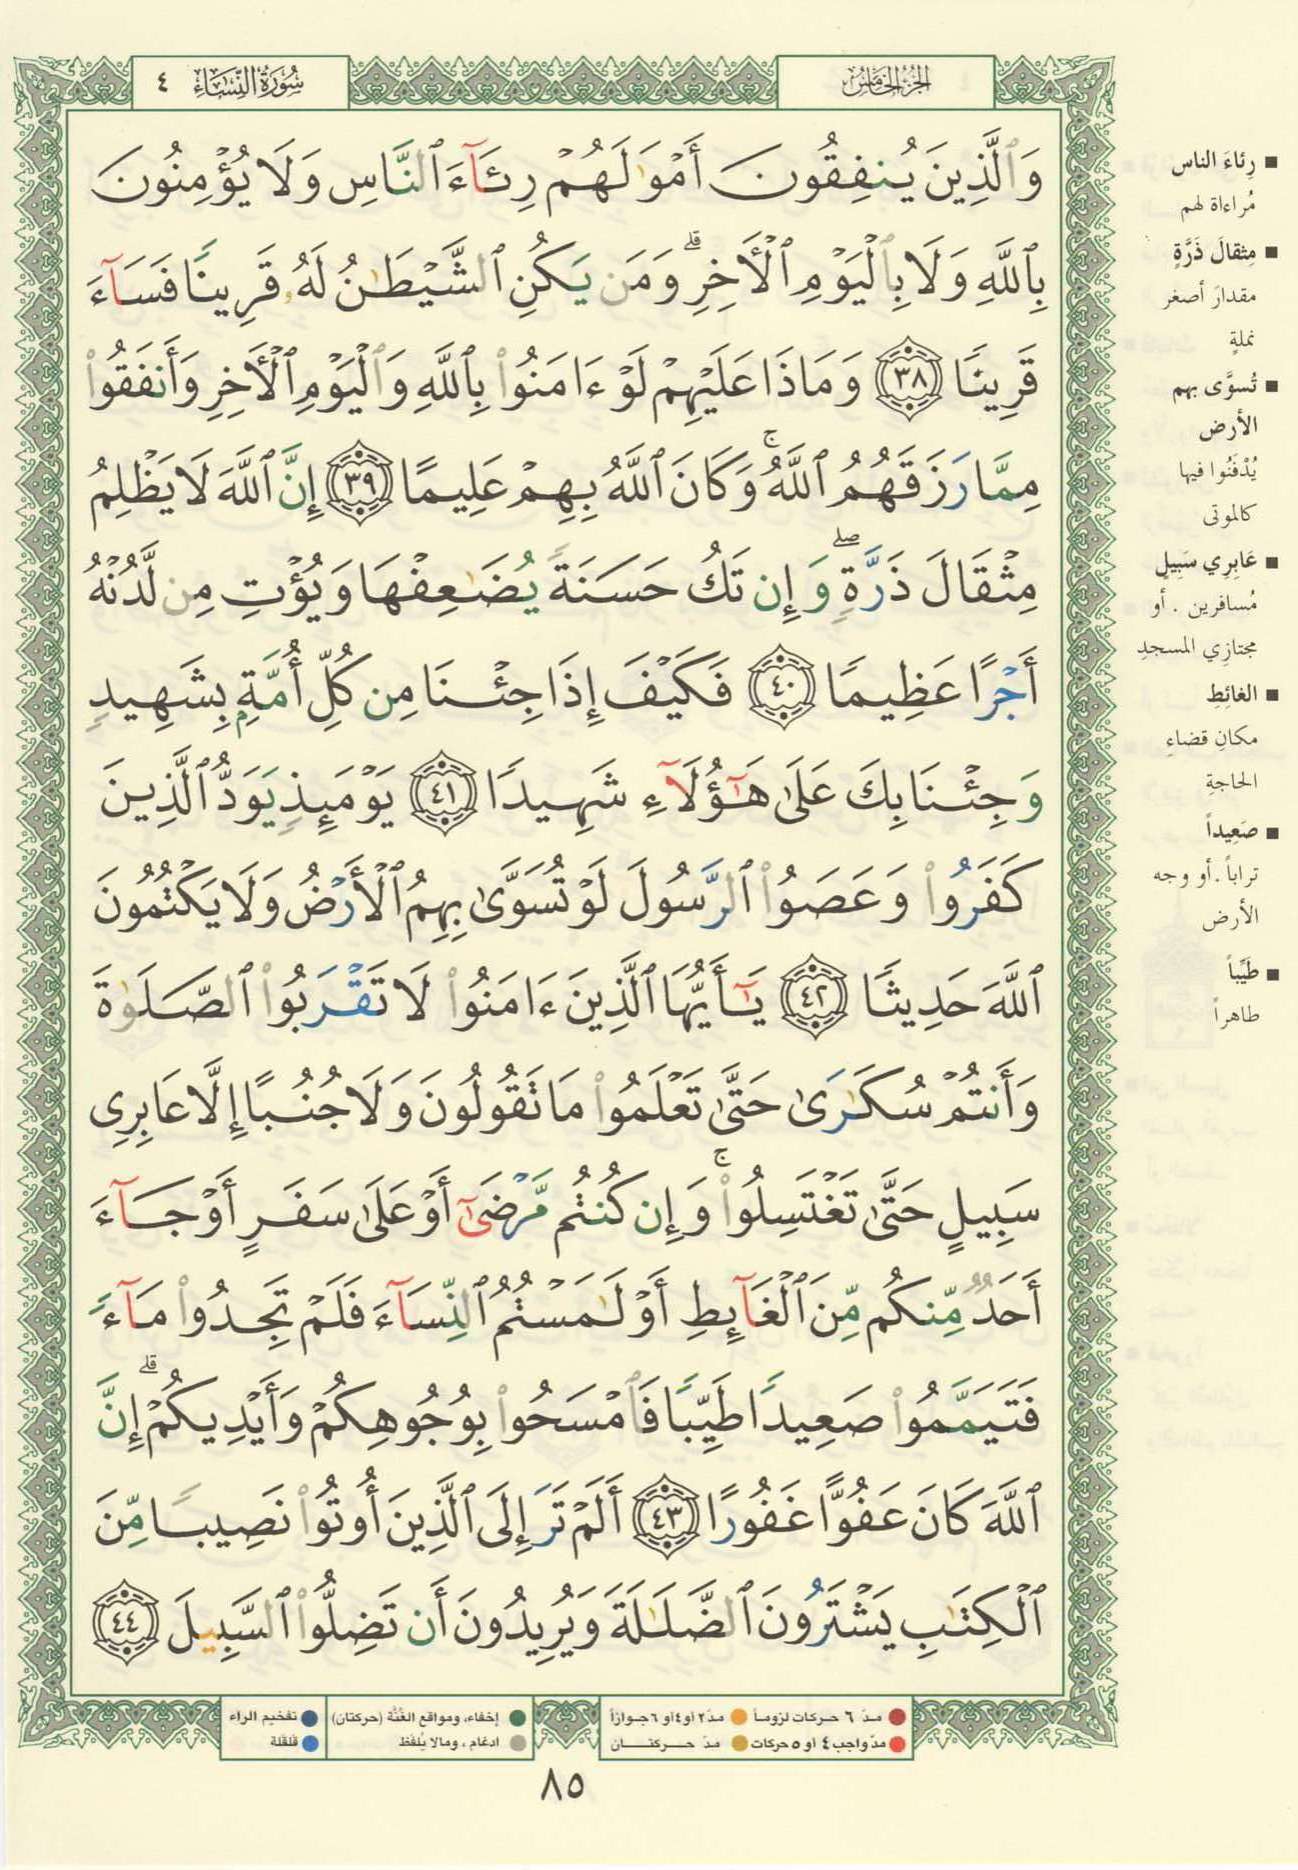 سُورَةُ النِّسَاءِ ٤
الجُزْءُ الخَامِسُ
وَٱلَّذِينَ يُنفِقُونَ أَمْوَٰلَهُمْ رِئَآءَ ٱلنَّاسِ وَلَا يُؤْمِنُونَ
بِٱللَّهِ وَلَا بِٱلْيَوْمِ ٱلْأَخِرِ ۗ وَمَن يَكُنِ ٱلشَّيْطَٰنُ لَهُۥ قَرِينًا فَسَآءَ
قَرِينًا ٣٨ وَمَاذَا عَلَيْهِمْ لَوْ ءَامَنُوا۟ بِٱللَّهِ وَٱلْيَوْمِ ٱلْأَخِرِ وَأَنفَقُوا۟
مِمَّا رَزَقَهُمُ ٱللَّهُ ۚ وَكَانَ ٱللَّهُ بِهِمْ عَلِيمًا ٣٩ إِنَّ ٱللَّهَ لَا يَظْلِمُ
مِثْقَالَ ذَرَّةٍ ۖ وَإِن تَكُ حَسَنَةً يُضَٰعِفْهَا وَيُؤْتِ مِن لَّدُنْهُ
أَجْرًا عَظِيمًا ٤٠ فَكَيْفَ إِذَا جِئْنَا مِن كُلِّ أُمَّةٍۭ بِشَهِيدٍ
وَجِئْنَا بِكَ عَلَىٰ هَٰٓؤُلَآءِ شَهِيدًا ٤١ يَوْمَئِذٍ يَوَدُّ ٱلَّذِينَ
كَفَرُوا۟ وَعَصَوُا۟ ٱلرَّسُولَ لَوْ تُسَوَّىٰ بِهِمُ ٱلْأَرْضُ وَلَا يَكْتُمُونَ
ٱللَّهَ حَدِيثًا ٤٢ يَٰٓأَيُّهَا ٱلَّذِينَ ءَامَنُوا۟ لَا تَقْرَبُوا۟ ٱلصَّلَوٰةَ
وَأَنتُمْ سُكَٰرَىٰ حَتَّىٰ تَعْلَمُوا۟ مَا تَقُولُونَ وَلَا جُنُبًا إِلَّا عَابِرِى
سَبِيلٍ حَتَّىٰ تَغْتَسِلُوا۟ ۚ وَإِن كُنتُم مَّرْضَىٰٓ أَوْ عَلَىٰ سَفَرٍ أَوْ جَآءَ
أَحَدٌ مِّنكُم مِّنَ ٱلْغَآئِطِ أَوْ لَٰمَسْتُمُ ٱلنِّسَآءَ فَلَمْ تَجِدُوا۟ مَآءً
فَتَيَمَّمُوا۟ صَعِيدًا طَيِّبًا فَٱمْسَحُوا۟ بِوُجُوهِكُمْ وَأَيْدِيكُمْ ۗ إِنَّ
ٱللَّهَ كَانَ عَفُوًّا غَفُورًا ٤٣ أَلَمْ تَرَ إِلَى ٱلَّذِينَ أُوتُوا۟ نَصِيبًا مِّنَ
ٱلْكِتَٰبِ يَشْتَرُونَ ٱلضَّلَٰلَةَ وَيُرِيدُونَ أَن تَضِلُّوا۟ ٱلسَّبِيلَ ٤٤
■ رِئاءَ الناس
مُراءاة لهم
■ مِثقالَ ذَرَّةٍ
مقدارَ أصغر
نملةٍ
■ تُسوَّى بهم
الأرض
يُدْفَنُوا فيها
كالموتى
■ عَابِرِي سَبِيلٍ
مُسافرين . أو
مجتازِي المسجدِ
■ الغائِطِ
مكانِ قضاءِ
الحاجةِ
■ صَعِيداً
تراباً . أو وجه
الأرض
■ طَيِّباً
طاهراً
مدّ ٦ حركات لزوماً
مدّ ٢ أو ٤ أو ٦ جوازاً
إخفاء، ومواقع الغُنَّة (حركتان)
تفخيم الراء
مدّ واجب ٤ أو ٥ حركات
مدّ حـــركتـــان
ادغام، ومالا يُلفَظ
قلقلة
٨٥